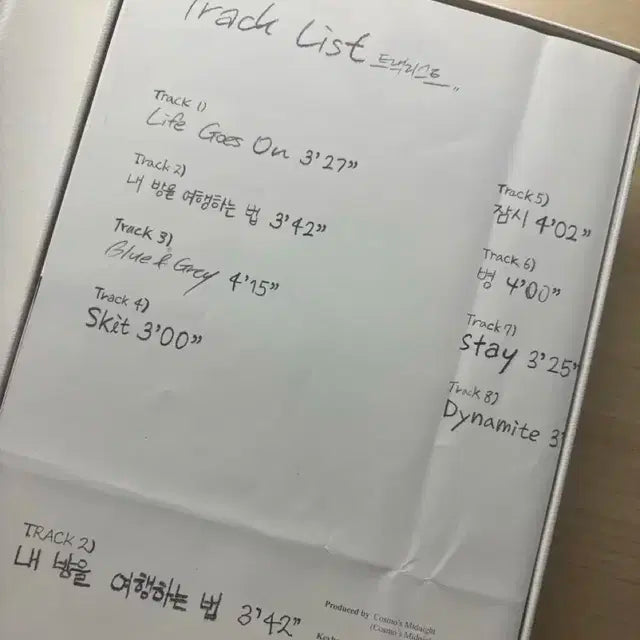 Track List 트랙리스트
Track 1)
Life Goes On 3'27"
Track 2)
내 방을 여행하는 법 3'42"
Track 3)
Blue & Grey 4'15"
Track 4)
Skit 3'00"
Track 5)
잠시 4'02"
Track 6)
병 4'00"
Track 7)
stay 3'25"
Track 8)
Dynamite 3'
TRACK 2)
내 방을 여행하는 법 3'42"
Produced by Cosmo's Midnight
(Cosmo's Midnight